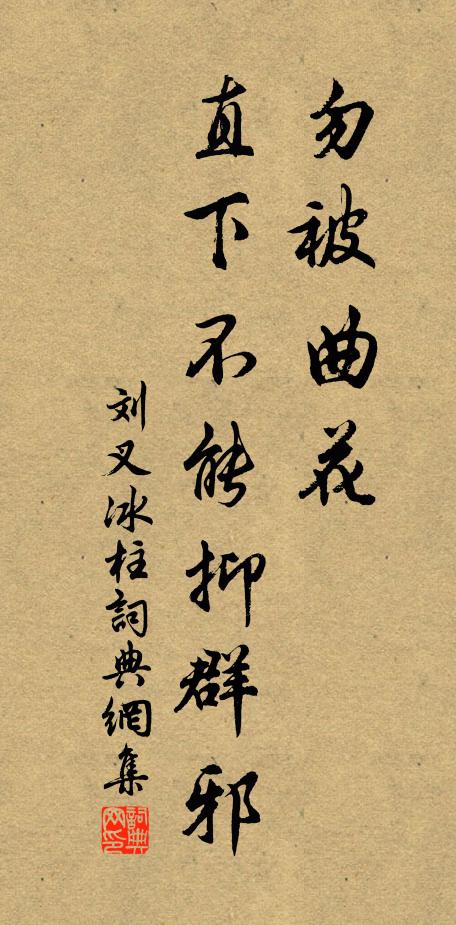 勿被曲花
直下不能抑群邪
刘叉冰柱詞典網集
詞典網印